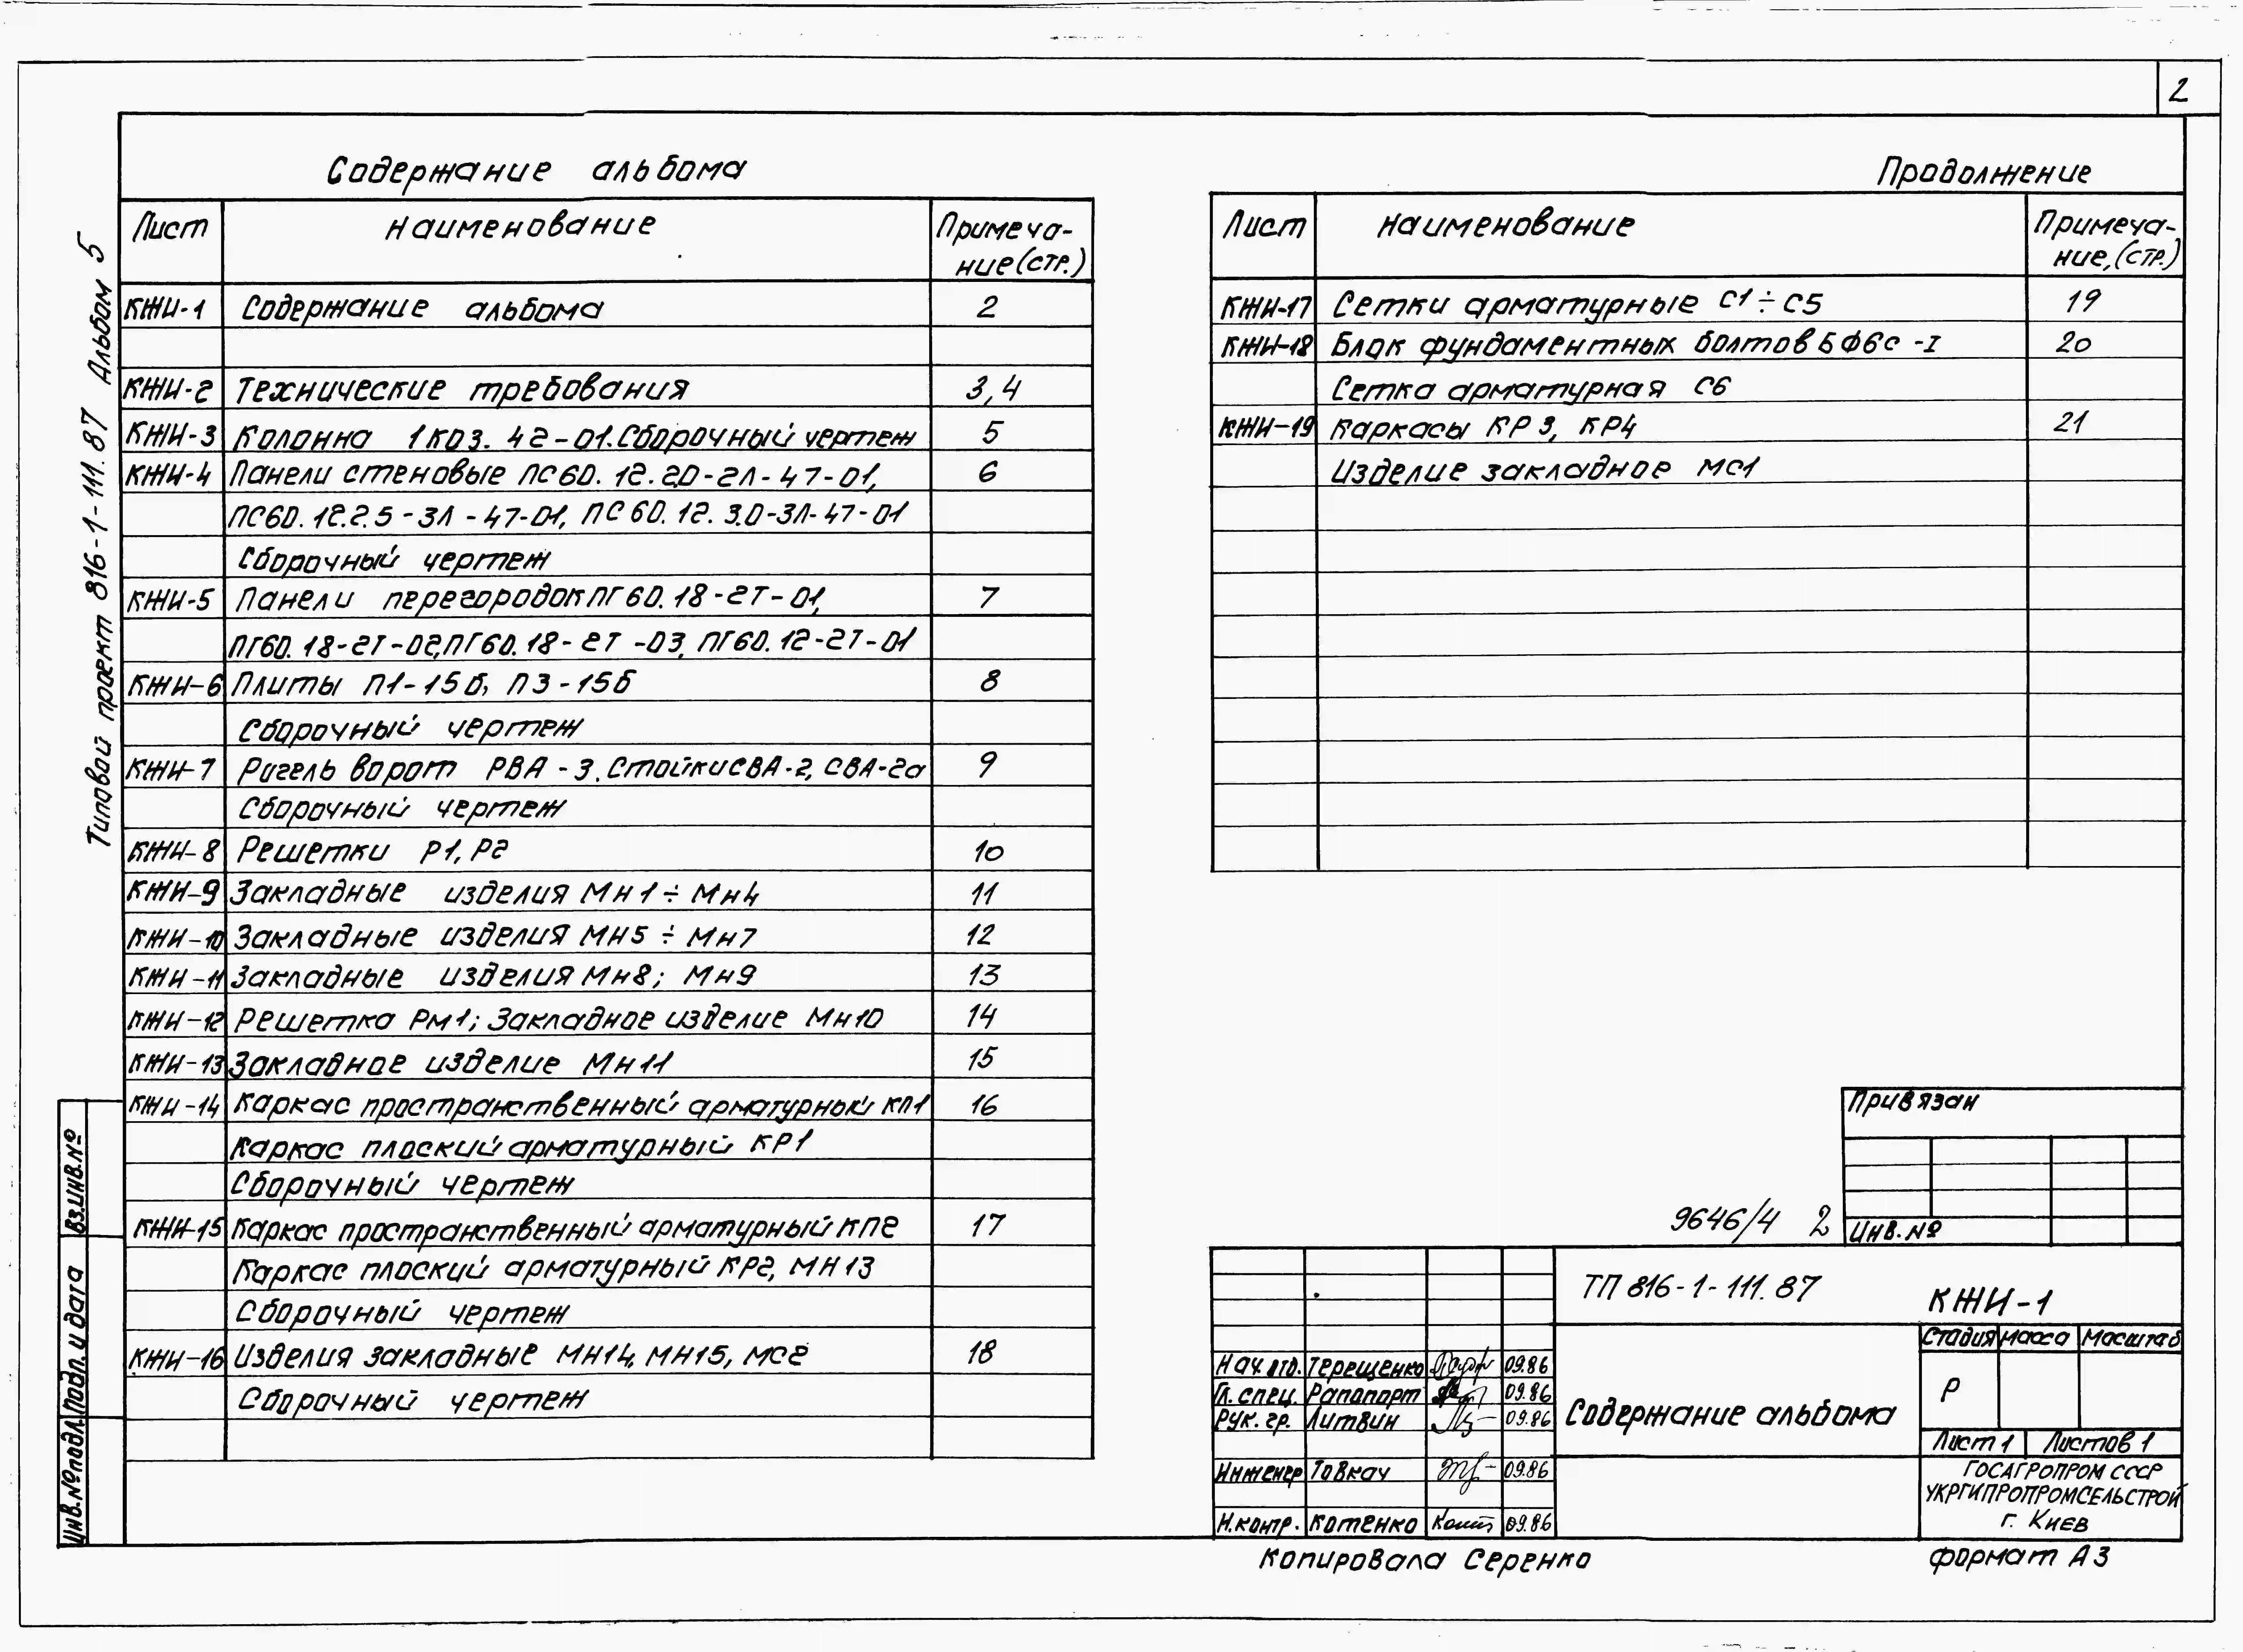 2
Содержание альбома
Лист Наименование Примеча-
ние (стр.)
КЖИ-1 Содержание альбома 2
КЖИ-2 Технические требования 3,4
КЖИ-3 Колонна 1К03. 42-01. Сборочный чертеж 5
КЖИ-4 Панели стеновые ПС60.12.2.0-2Л-47-01, 6
ПС60.12.2.5-3Л-47-01, ПС60.12.3.0-3Л-47-01
Сборочный чертеж
КЖИ-5 Панели перегородок ПГ60.18-2Т-01, 7
ПГ60.18-2Т-02, ПГ60.18-2Т-03, ПГ60.12-2Т-01
КЖИ-6 Плиты П1-15б, П3-15б 8
Сборочный чертеж
КЖИ-7 Ригель ворот РВА-3. Стойки СВА-2, СВА-2а 9
Сборочный чертеж
КЖИ-8 Решетки Р1, Р2 10
КЖИ-9 Закладные изделия Мн1÷Мн4 11
КЖИ-10 Закладные изделия МН5÷Мн7 12
КЖИ-11 Закладные изделия Мн8; Мн9 13
КЖИ-12 Решетка Рм1; Закладное изделие Мн10 14
КЖИ-13 Закладное изделие Мн11 15
КЖИ-14 Каркас пространственный арматурный КП1 16
Каркас плоский арматурный КР1
Сборочный чертеж
КЖИ-15 Каркас пространственный арматурный КП2 17
Каркас плоский арматурный КР2, МН13
Сборочный чертеж
КЖИ-16 Изделия закладные МН14, МН15, МС2 18
Сборочный чертеж
Продолжение
Лист Наименование Примеча-
ние, (стр.)
КЖИ-17 Сетки арматурные С1÷С5 19
КЖИ-18 Блок фундаментных болтов БФ6с-I 20
Сетка арматурная С6
КЖИ-19 Каркасы КР3, КР4 21
Изделие закладное МС1
Типовой проект 816-1-111.87 Альбом 5
Взинв.№
Подп. и дата
Инв.№подл.
Привязан
Инв.№
9646/4 2
ТП 816-1-111.87 КЖИ-1
Стадия Масса Масштаб
Р
Содержание альбома
Лист 1 Листов 1
ГОСАГРОПРОМ СССР
УКРГИПРОПРОМСЕЛЬСТРОЙ
г. Киев
Нач. отд. Терещенко 09.86
Гл. спец. Рапопорт 09.86
Рук. гр. Литвин 09.86
Инженер Товкач 09.86
Н.контр. Котенко 09.86
Копировала Серенко формат А3